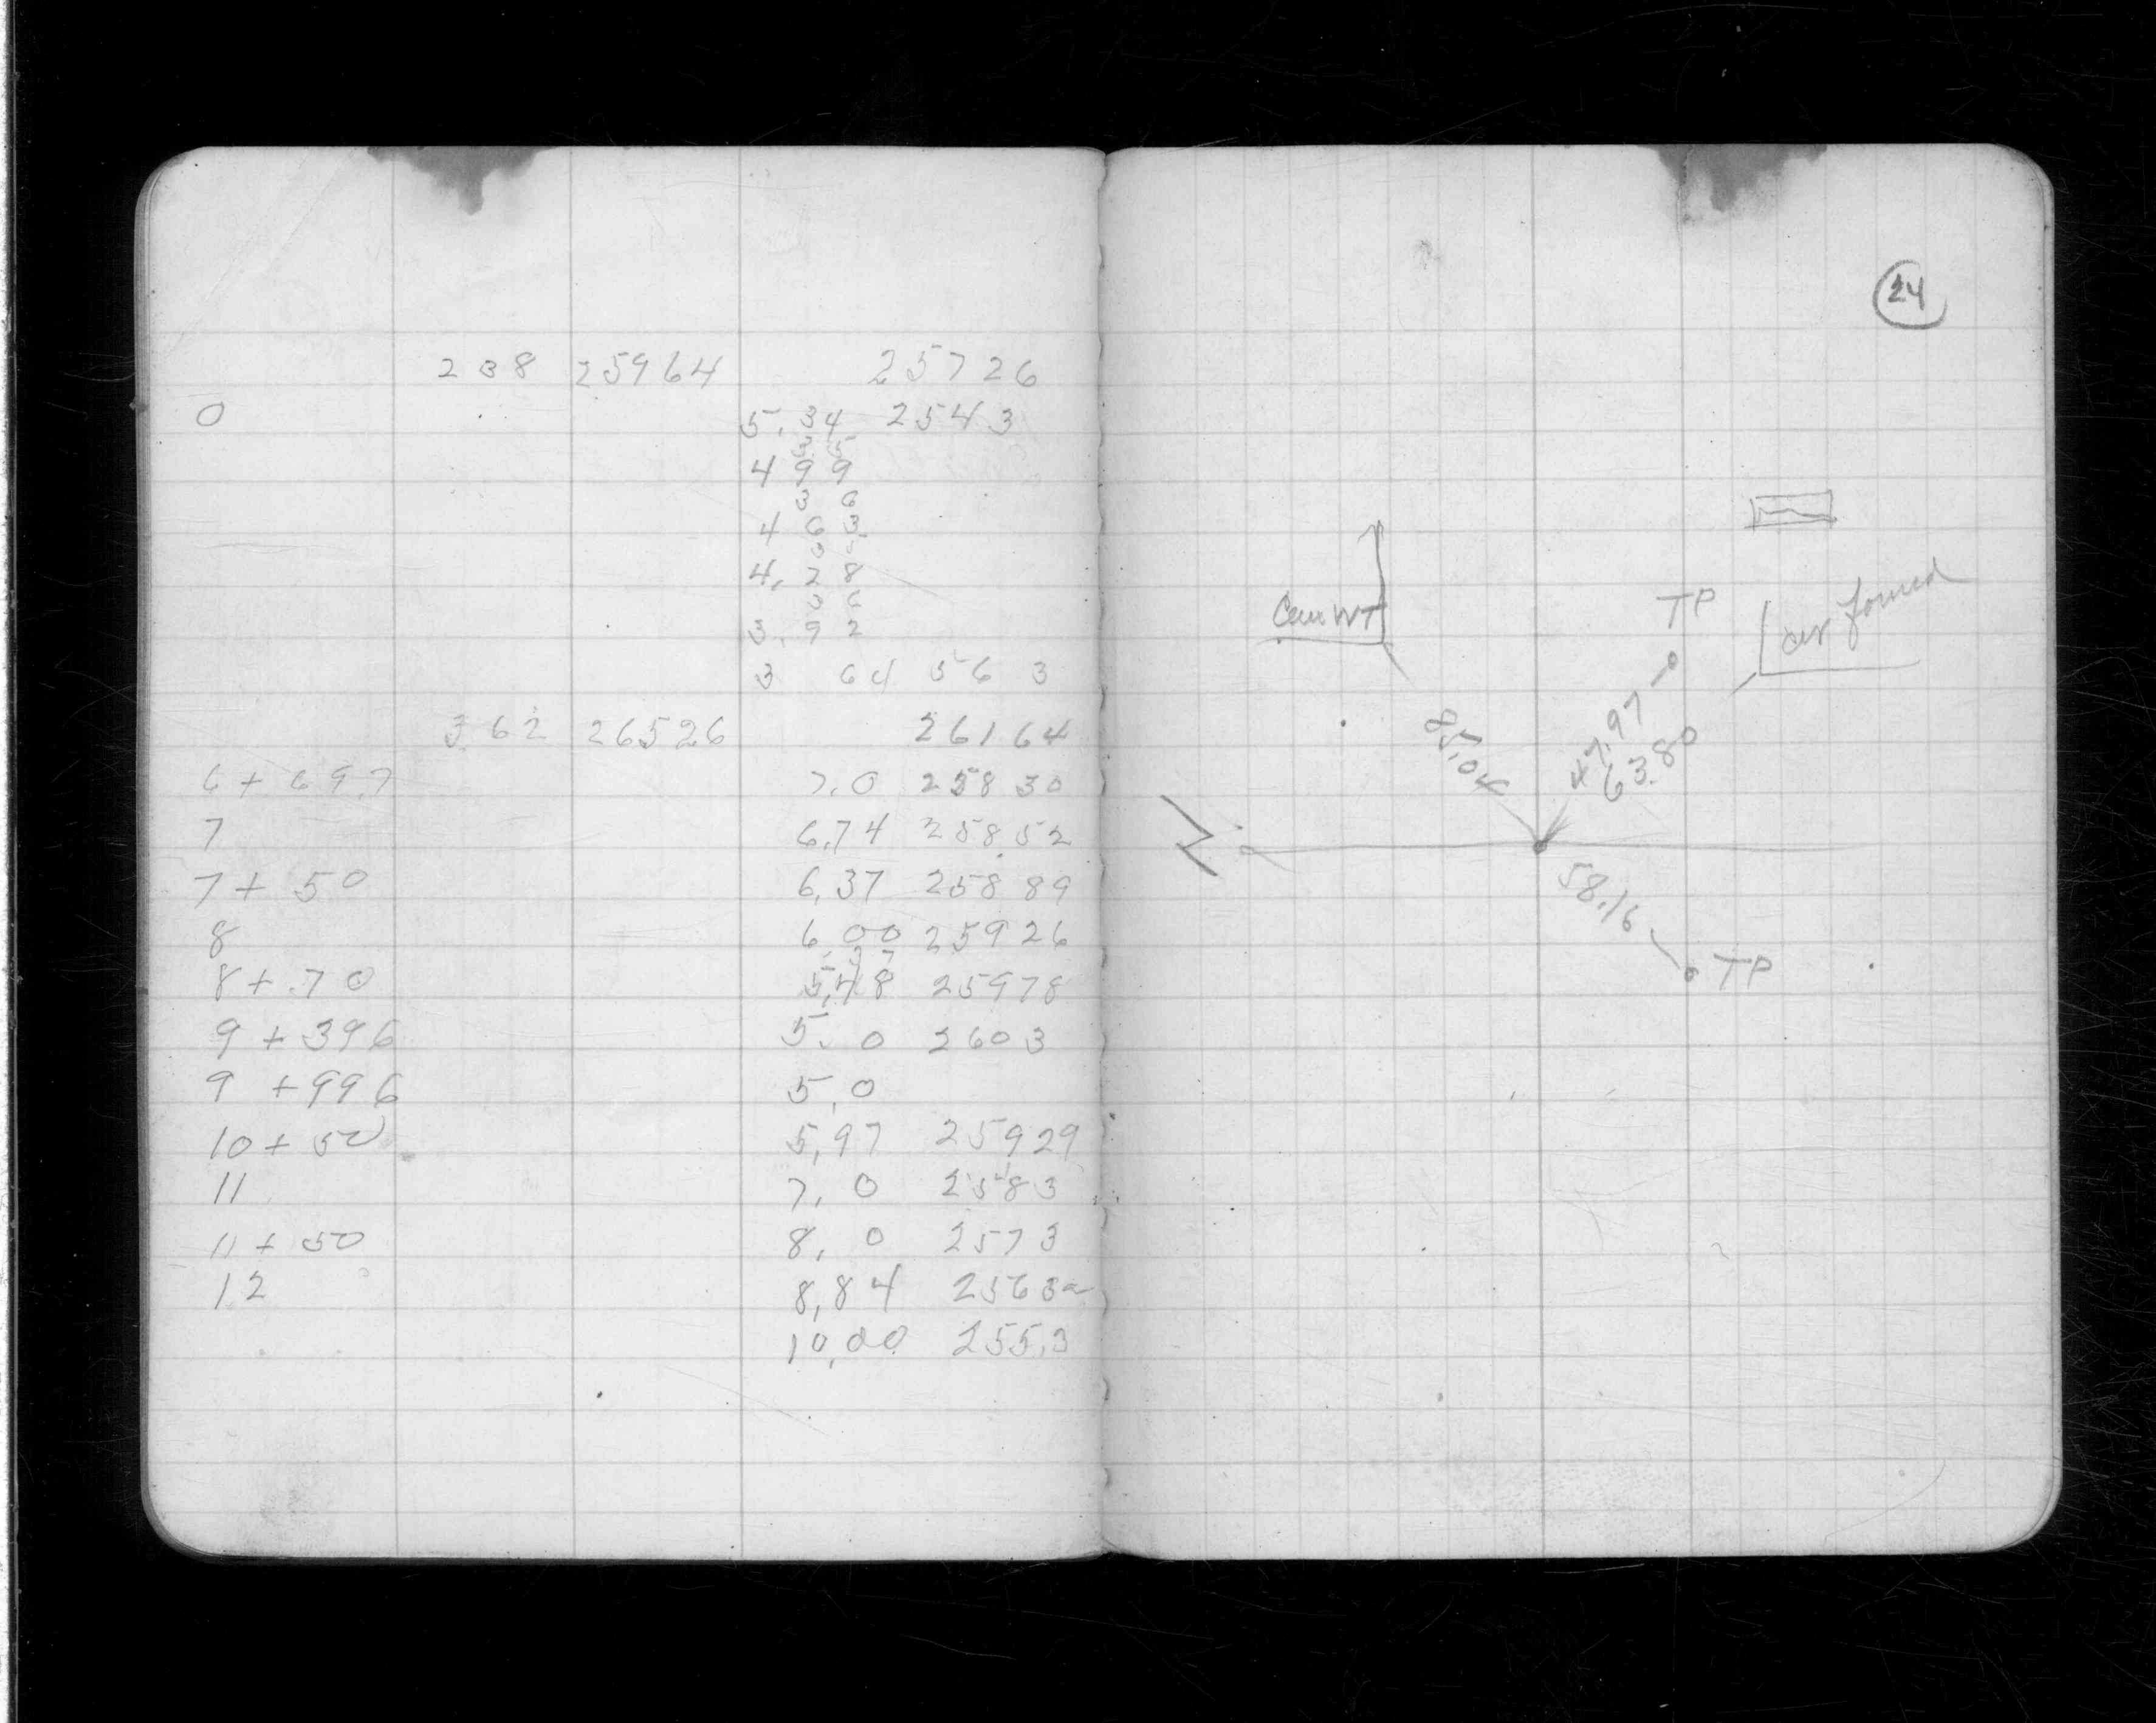 238 25964 25726
0 5.34 2543
35
4 9 9
3 6
4 6 3
4. 2 8
3. 9 2
3 64 56 3
362 26526 26164
6 + 69.7 7.0 25830
7 6.74 25852
7 + 50 6.37 25889
8 6.00 25926
37
8 + 70 5.48 25978
9 + 396 5. 0 2603
9 + 996 5.0
10 + 50 5.97 25929
11 7. 0 2583
11 + 50 8. 0 2573
12 8.84 2563
10.00 255.3
24
TP
85.04
47.97
63.80
58.16
TP